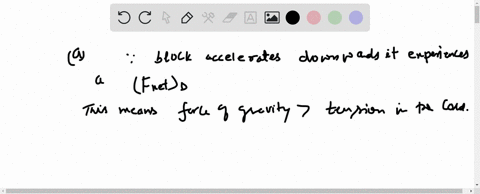 (a) ∵ block accelerates downwads it experiences
a (Fnet)D
This means force of gravity > tension in the Cord.